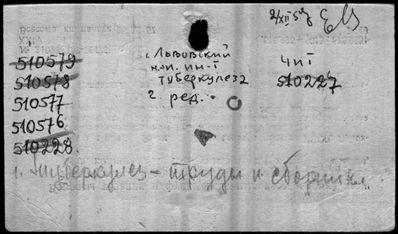 2/XII 5
г. Львовский
н.-и. ин-т
туберкулеза
г. ред.
510579
510578
510577
510576
510228
чит
510227
Туберкулез - труды и сборники